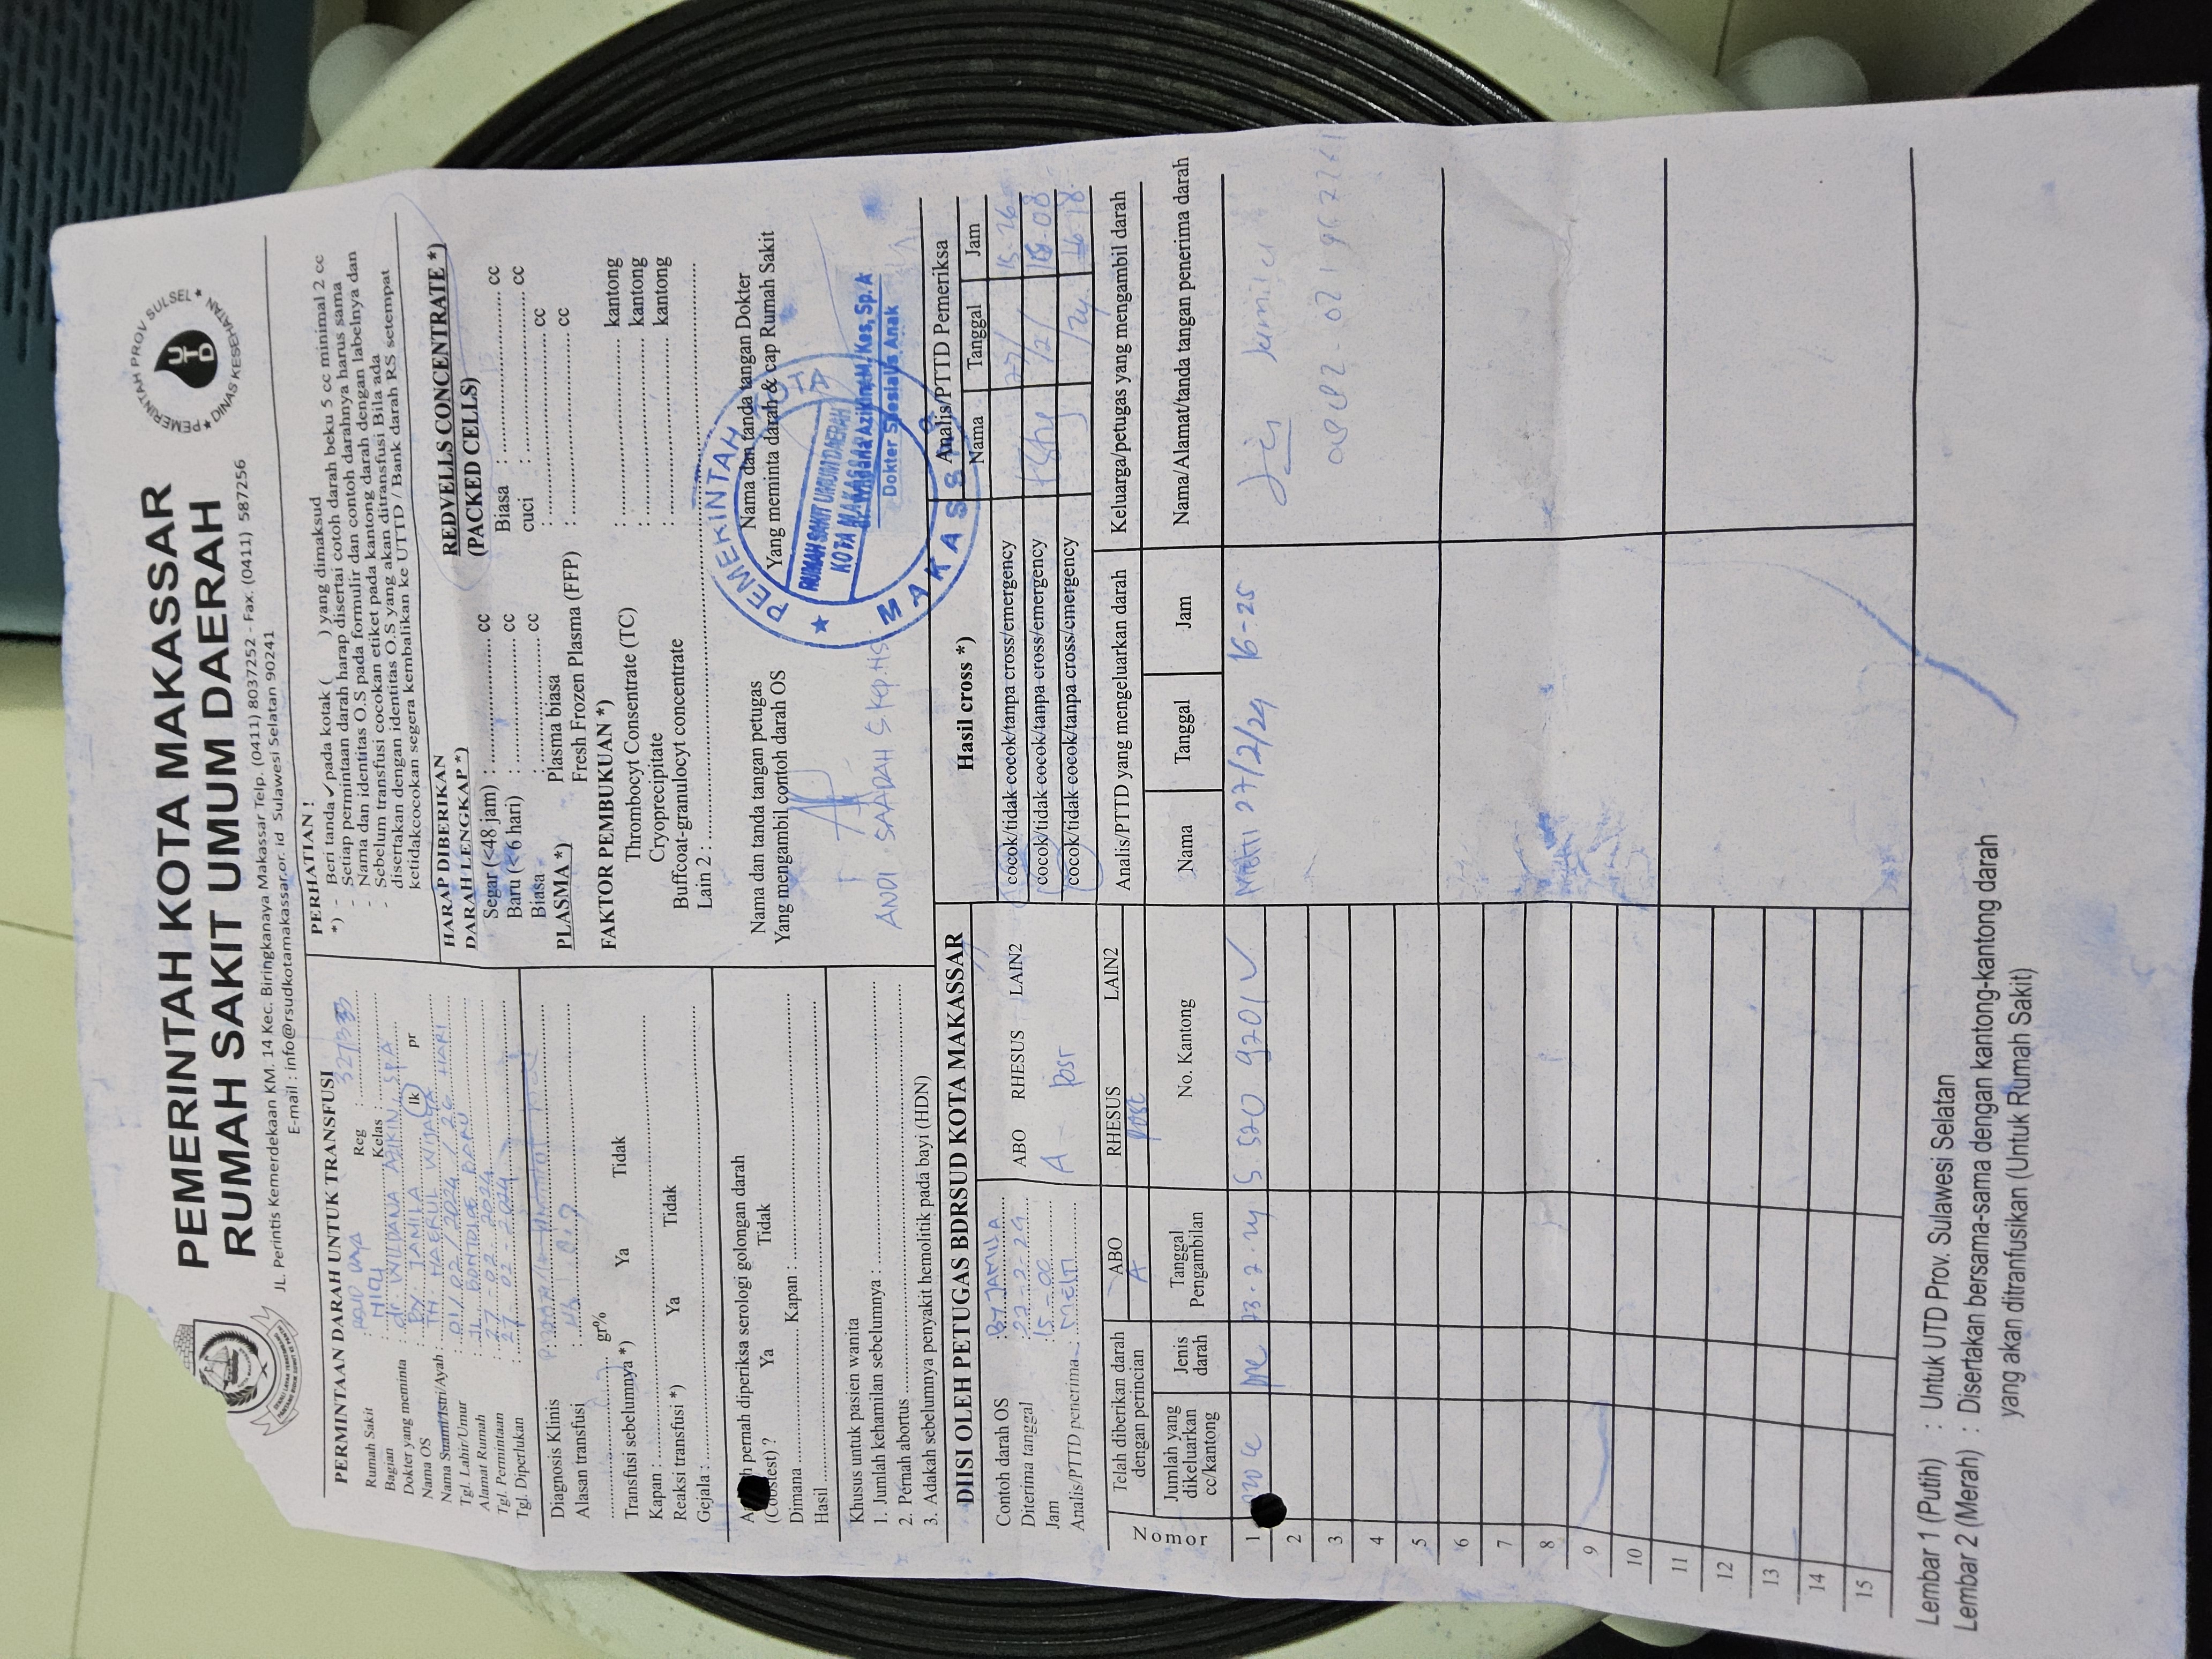 PEMERINTAH KOTA MAKASSAR
RUMAH SAKIT UMUM DAERAH
JL. Perintis Kemerdekaan KM. 14 Kec. Biringkanaya Makassar Telp. (0411) 8037252 - Fax. (0411) 587256
E-mail : info@rsudkotamakassar.or. id Sulawesi Selatan 90241
PEMERINTAH PROV SULSEL
UTD
DINAS KESEHATAN
PERMINTAAN DARAH UNTUK TRANSFUSI
Rumah Sakit : RSUD DAYA Reg :
Bagian : NICU Kelas :
Dokter yang meminta : dr. WILDANA AZIKIN, Sp.A
Nama OS : BY. JAMILA lk pr
Nama Suami/Istri/Ayah : TN. HAERUL WIJAYA
Tgl. Lahir/Umur : 01/02/2024 / 26 HARI
Alamat Rumah : JL. BONTOLOE BARU
Tgl. Permintaan : 27-02-2024
Tgl. Diperlukan : 27-02-2024
Diagnosis Klinis :
Alasan transfusi : Hb
gr%
Transfusi sebelumnya *) Ya Tidak
Kapan :
Reaksi transfusi *) Ya Tidak
Gejala :
pernah diperiksa serologi golongan darah
(Coostest) ? Ya Tidak
Dimana Kapan :
Hasil
Khusus untuk pasien wanita
1. Jumlah kehamilan sebelumnya :
2. Pernah abortus
3. Adakah sebelumnya penyakit hemolitik pada bayi (HDN)
PERHATIAN !
*) - Beri tanda ✓ pada kotak ( ) yang dimaksud
- Setiap permintaan darah harap disertai cotoh darah beku 5 cc minimal 2 cc
- Nama dan identitas O.S pada formulir dan contoh darahnya harus sama
- Sebelum transfusi cocokan etiket pada kantong darah dengan labelnya dan
disertakan dengan identitas O.S yang akan ditransfusi Bila ada
ketidakcocokan segera kembalikan ke UTTD / Bank darah RS setempat
HARAP DIBERIKAN
DARAH LENGKAP *)
Segar (<48 jam) : cc
Baru (< 6 hari) : cc
Biasa : cc
REDVELLS CONCENTRATE *)
(PACKED CELLS)
Biasa : cc
cuci : cc
PLASMA *) Plasma biasa : cc
Fresh Frozen Plasma (FFP) : cc
FAKTOR PEMBUKUAN *)
Thrombocyt Consentrate (TC) : kantong
Cryoprecipitate : kantong
Buffcoat-granulocyt concentrate : kantong
Lain 2 :
Nama dan tanda tangan petugas
Yang mengambil contoh darah OS
ANDI SAADAH S.Kep.Ns
Nama dan tanda tangan Dokter
Yang meminta darah & cap Rumah Sakit
PEMERINTAH KOTA
RUMAH SAKIT UMUM DAERAH
KOTA MAKASSAR
MAKASSAR
dr. Wildana Azikin, M. Kes, Sp. A
Dokter Spesialis Anak
DIISI OLEH PETUGAS BDRSUD KOTA MAKASSAR
Contoh darah OS : BY JAMILA
Diterima tanggal :
Jam : 15-00
Analis/PTTD penerima :
ABO RHESUS LAIN2
A post
Hasil cross *)
Analis/PTTD Pemeriksa
Nama Tanggal Jam
cocok/tidak cocok/tanpa cross/emergency 27/
cocok/tidak cocok/tanpa cross/emergency /2/
cocok/tidak cocok/tanpa cross/emergency /24
Nomor
Telah diberikan darah
dengan perincian
ABO RHESUS LAIN2
A post
Analis/PTTD yang mengeluarkan darah
Keluarga/petugas yang mengambil darah
Jumlah yang
dikeluarkan
cc/kantong
Jenis
darah
Tanggal
Pengambilan
No. Kantong
Nama Tanggal Jam
Nama/Alamat/tanda tangan penerima darah
1 27/2/24 16-25
2
3
4
5
6
7
8
9
10
11
12
13
14
15
Lembar 1 (Putih) : Untuk UTD Prov. Sulawesi Selatan
Lembar 2 (Merah) : Disertakan bersama-sama dengan kantong-kantong darah
yang akan ditranfusikan (Untuk Rumah Sakit)